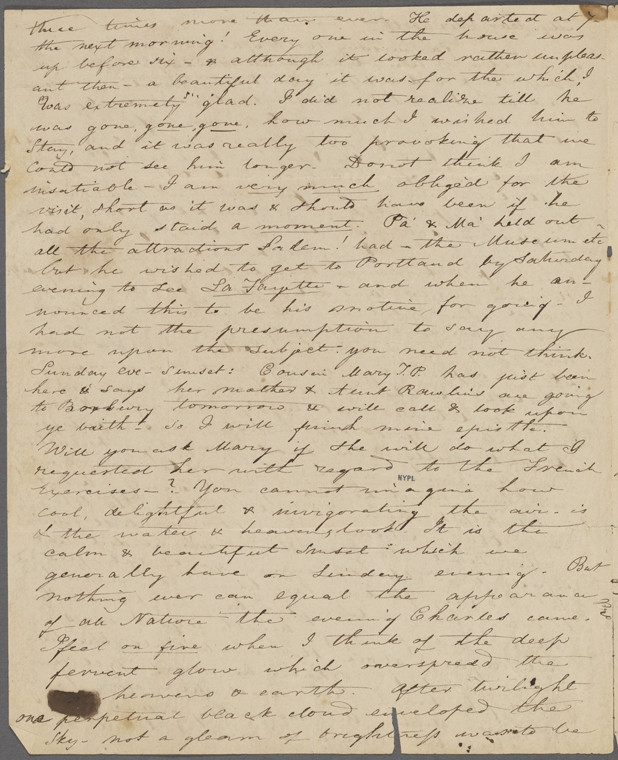 three times more than ever. He departed at 7
the next morning! Every one in the house was
up before six - & although it looked rather unpleas-
ant then - a beautiful day it was for the which, I
was extremely glad. I did not realize till he
was gone, gone, gone, how much I wished him to
Stay, and it was really too provoking that we
could not see him longer. Do not think I am
insatiable - I am very much obliged for the
visit, short as it was & should have been if he
had only staid a moment. Pa' & Ma' held out
all the attractions Salem! had - the Museum etc
but he wished to get to Portland by Saturday
evening to see La Fayette - and when he an-
nounced this to be his motive, for going - I
had not the presumption to say any
more upon the subject - you need not think.
Sunday eve - sunset: Cousin Mary T. P. has just been
here & says her mother & Aunt Rawlins are going
to Roxbury tomorrow & will call & look upon
ye baith - so I will finish mine epistle.
Will you ask Mary if she will do what I
requested her with regard to the French
Exercises - ? You cannot imagine how
NYPL
cool, delightful & invigorating the air is
& the water & heavens look. It is the
calm & beautiful sunset which we
generally have on Sunday evening. But
nothing ever can equal the appearance
of all Nature the evening Charles came.
I feel on fire when I think of the deep
fervent glow which overspread the
heavens & earth. After twilight
one perpetual black cloud enveloped the
sky - not a gleam of brightness was to be